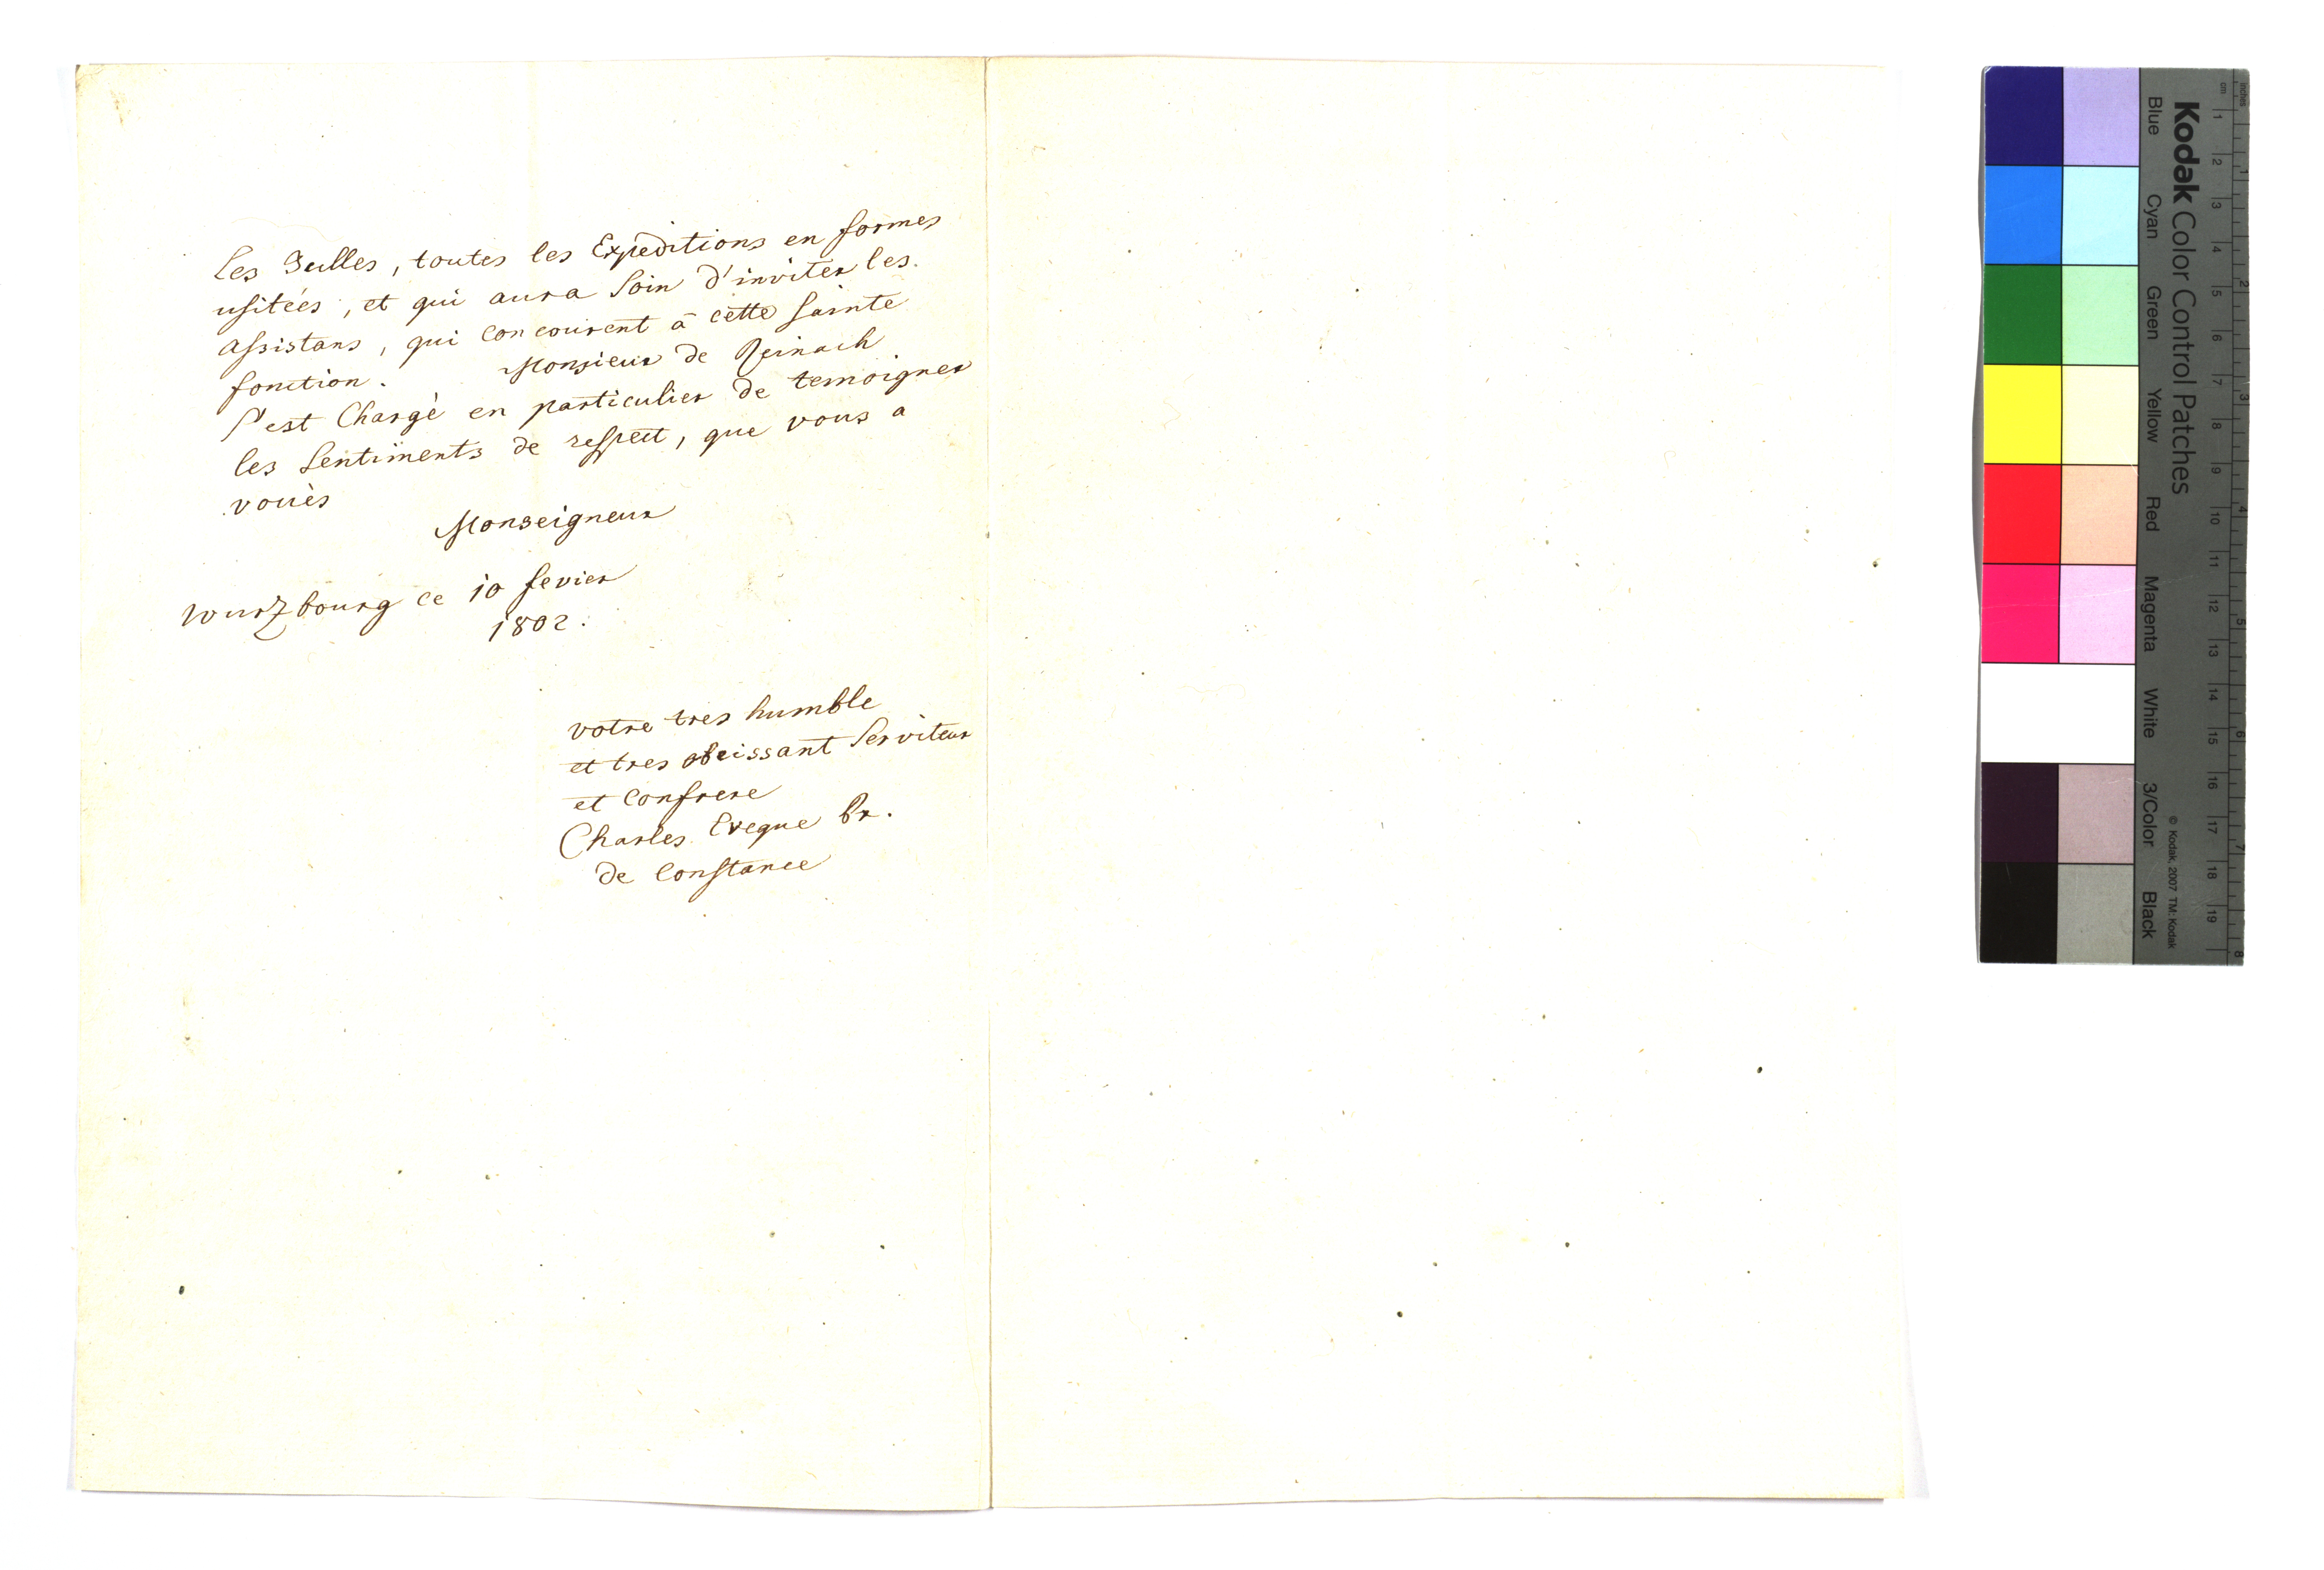 les Bulles, toutes les Expeditions en formes
usiteés, et qui aura soin d'inviter les
assistans, qui concourent à cette sainte
fonction. Monsieur de Reinach
s'est Chargè en particulier de temoigner
les sentiments de respect, que vous a
vouès
Monseigneur
Wurzbourg ce 10 fevier
1802.
votre tres humble
et tres obeissant serviteur
et Confrere
Charles Eveque Pr.
de Constance
Kodak Color Control Patches
Blue Cyan Green Yellow Red Magenta White 3/Color Black
© Kodak, 2007 TM: Kodak
inches 1 2 3 4 5 6 7 8
cm 1 2 3 4 5 6 7 8 9 10 11 12 13 14 15 16 17 18 19